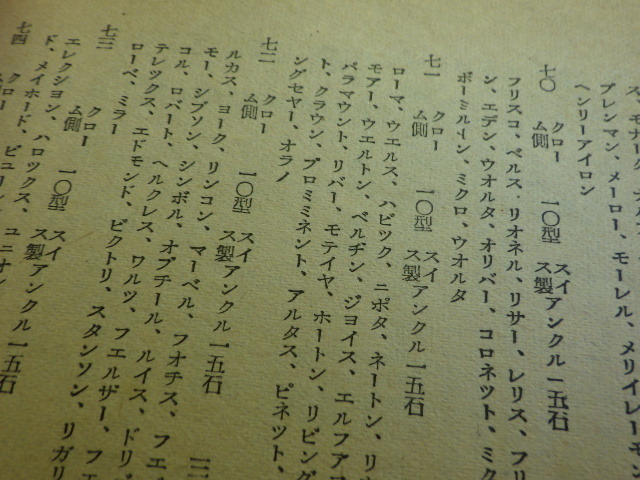 ス、モナーク、
プレンマン、メーロー、モーレル、メリイレーモン
ヘンリーアイロン
七〇 クローム側 一〇型 スイス製 アンクル一五石
フリスコ、ベルス、リオネル、リサー、レリス、フリ
ン、エデン、ウオルタ、オリバー、コロネット、ミク
ボーミルトン、ミクロ、ウオルタ
七一 クローム側 一〇型 スイス製 アンクル一五石
ローマ、ウエルス、ハビック、ニポタ、ネートン、リ
モアー、ウエルトン、ベルヂン、ジョイス、エルフア
パラマウント、リバー、モテイヤ、ホートン、リビング
ト、クラウン、プロミネント、アルタス、ピネット、
ングセヤー、オラノ
七二 クローム側 一〇型 スイス製 アンクル一五石
ルカス、ヨーク、リンコン、マーベル、フオチス、フエ
モー、シブソン、シンボル、オプチール、ルイス、ドリ
コル、ロバート、ヘルクレス、ワルツ、フエルザー、フエ
テレックス、エドモンド、ビクトリ、スタンソン、リガリ
ローベ、ミラー
七三 クローム側 一〇型 スイス製 アンクル一五石
エレクション、ハロックス、
ド、メイホード、ピュ
七四 クロー